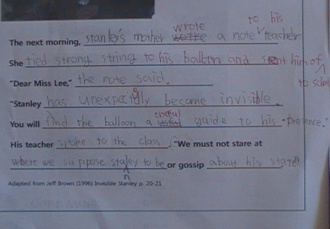 The next morning, stanley's mother wrote a note to his teacher
She tied strong string to his balloon and sent him off to school
"Dear Miss Lee," the note said.
"Stanley has unexpectedly become invisible.
You will find the balloon a useful guide to his "presence."
His teacher spoke to the class. "We must not stare at
where we suppose stanley to be or gossip about his state"
Adapted from Jeff Brown (1996) Invisible Stanley p. 20-21